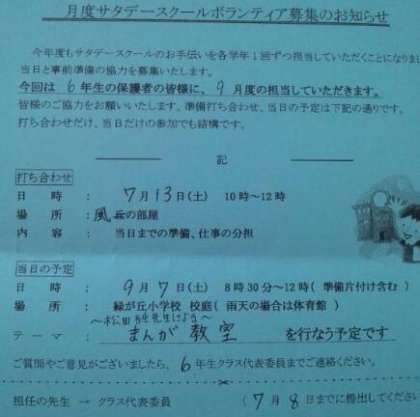 月度サタデースクールボランティア募集のお知らせ
今年度もサタデースクールのお手伝いを各学年1回ずつ担当していただくことになりま
当日と事前準備の協力を募集いたします。
今回は 6年生の保護者の皆様に、9月度の担当していただきます。
皆様のご協力をお願いいたします。準備打ち合わせ、当日の予定は下記の通りです。
打ち合わせだけ、当日だけの参加でも結構です。
記
打ち合わせ
日 時 : 7月13日(土) 10時~12時
場 所 : 風の部屋
内 容 : 当日までの準備、仕事の分担
当日の予定
日 時 : 9月7日(土) 8時30分~12時( 準備片付け含む )
場 所 : 緑が丘小学校 校庭( 雨天の場合は体育館 )
~松田 先生による~
テーマ : まんが教室 を行なう予定です
ご質問やご意見がございましたら、6年生クラス代表委員までご連絡ください。
担任の先生 → クラス代表委員 (7月8日までに提出してくださ